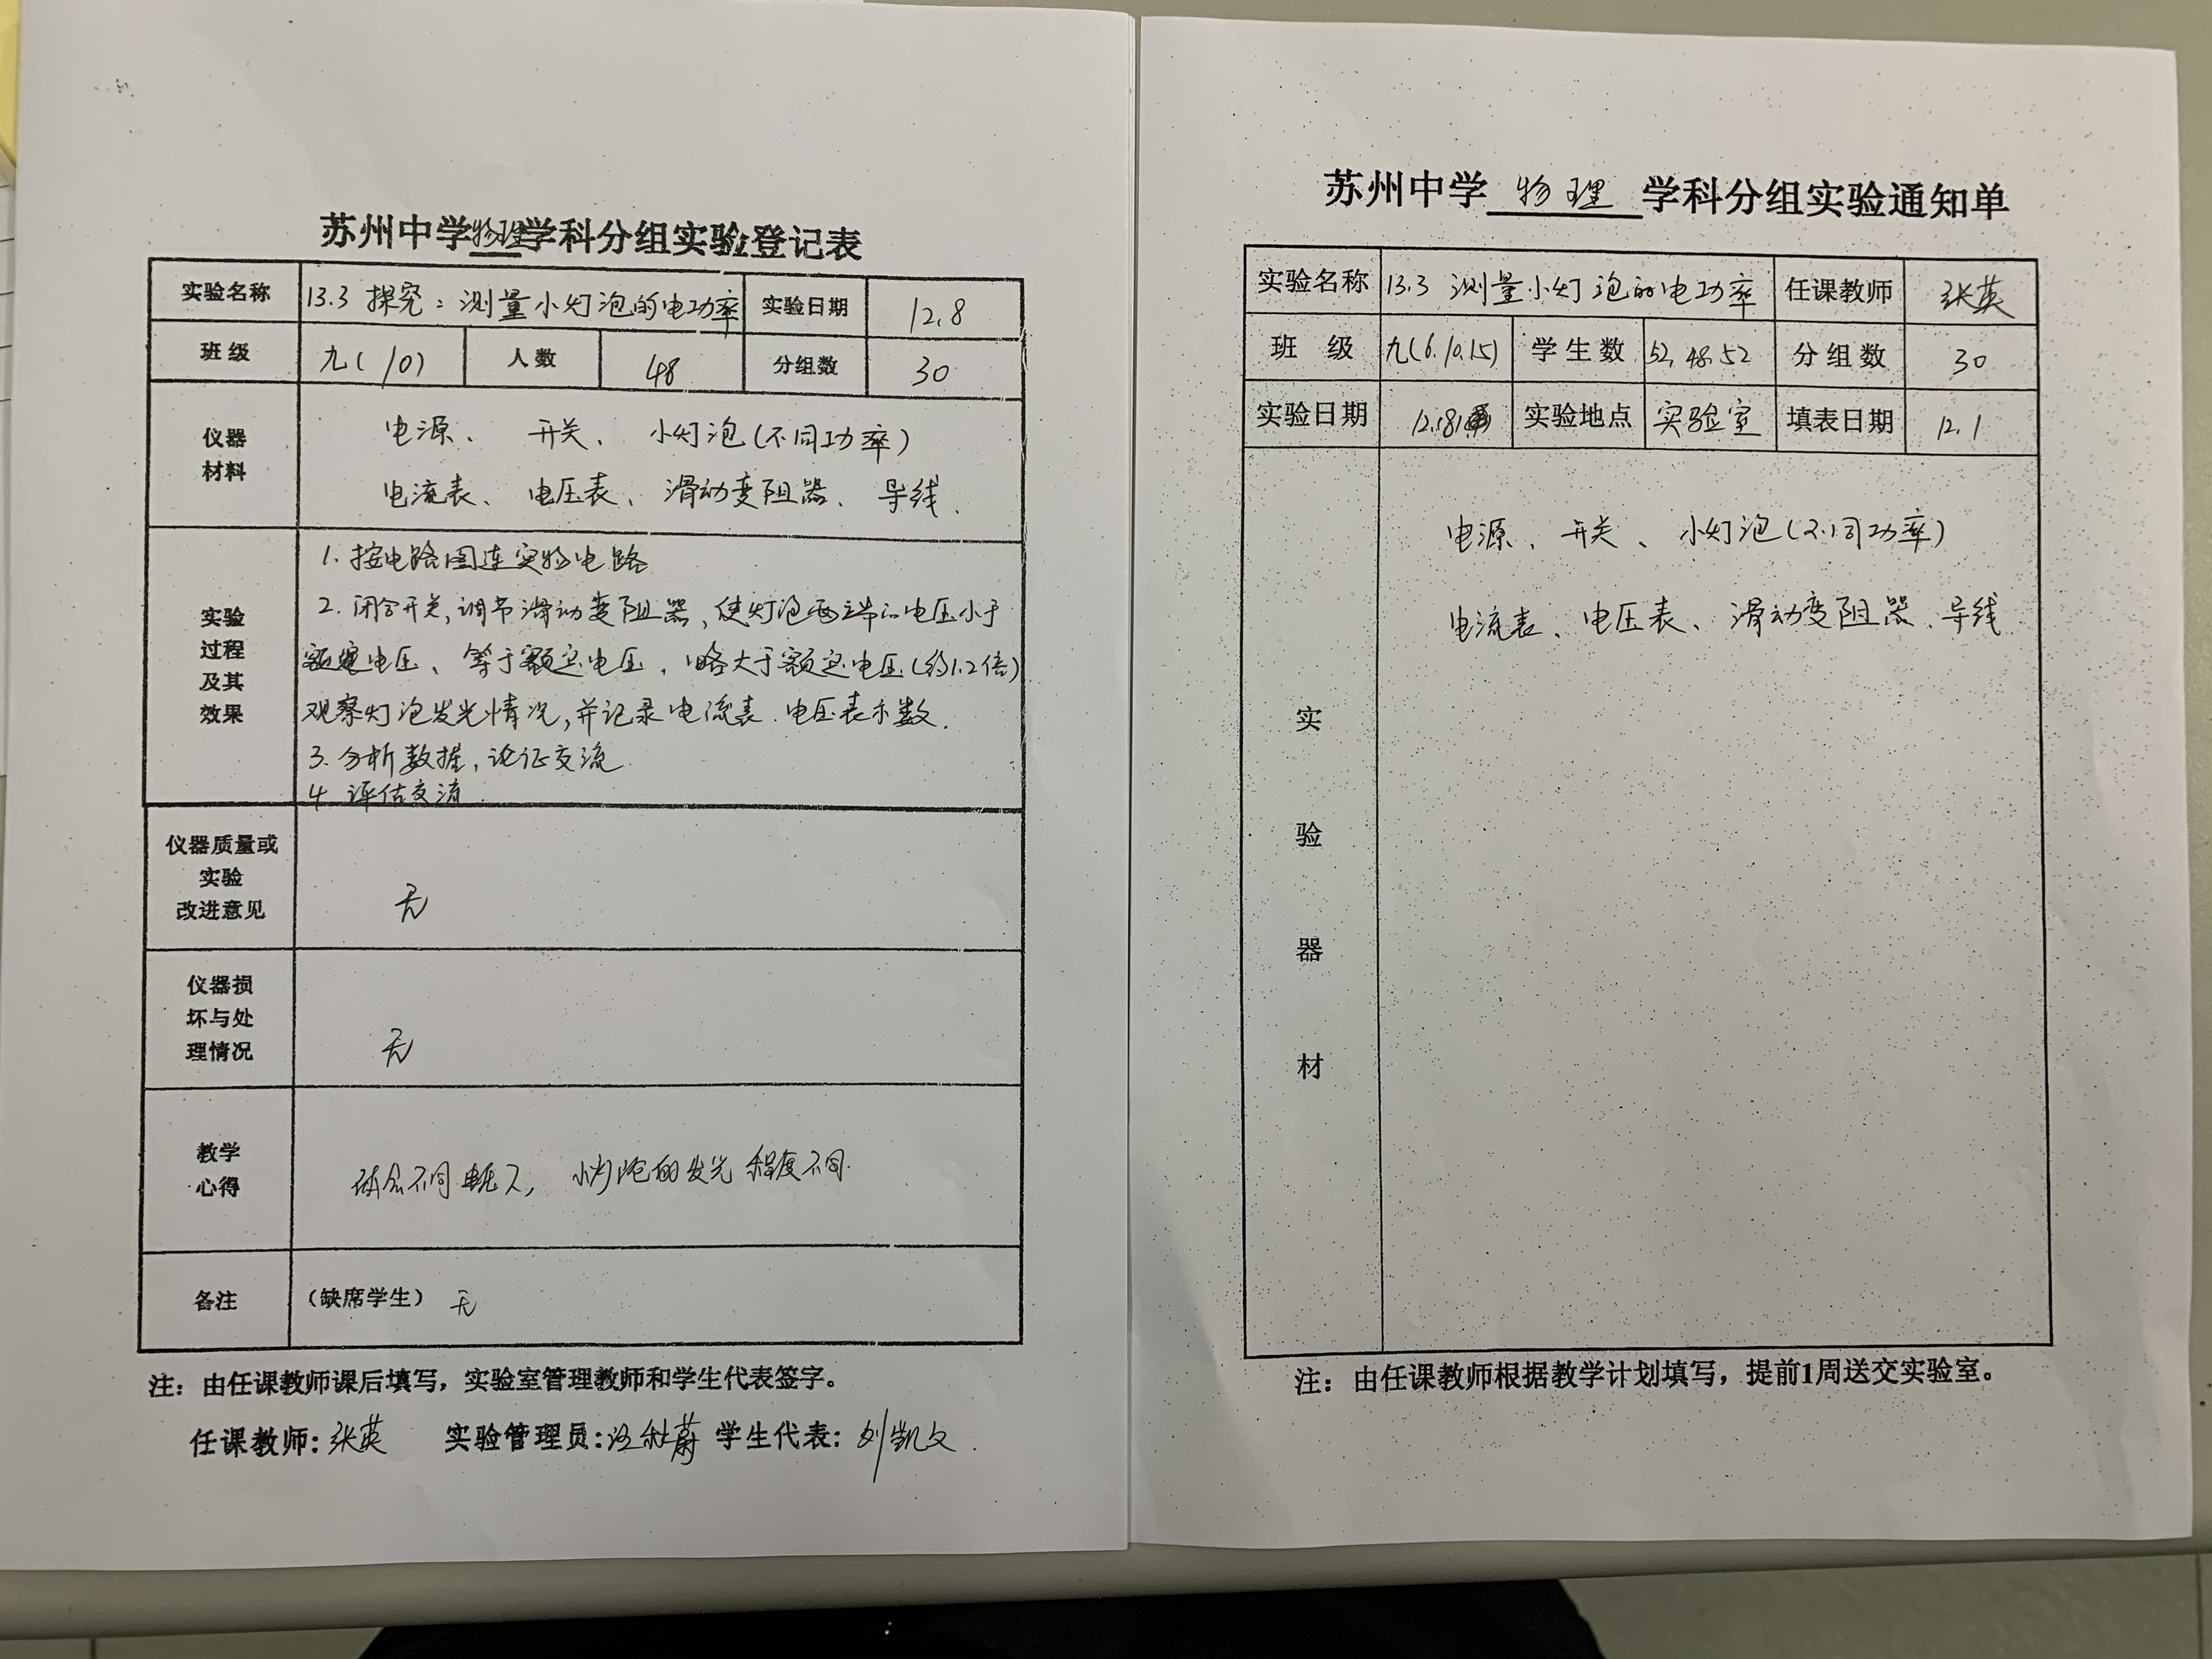 苏州中学物理学科分组实验登记表
实验名称 13.3 探究：测量小灯泡的电功率 实验日期 12.8
班级 九(10) 人数 48 分组数 30
仪器
材料
电源、 开关、 小灯泡(不同功率)
电流表、 电压表、 滑动变阻器、 导线.
实验
过程
及其
效果
1. 按电路图连实物电路
2. 闭合开关,调节滑动变阻器,使灯泡两端的电压小于
额定电压、等于额定电压,略大于额定电压(约1.2倍)
观察灯泡发光情况,并记录电流表.电压表示数.
3. 分析数据,论证交流.
4. 评估交流.
仪器质量或
实验
改进意见
无
仪器损
坏与处
理情况
无
教学
心得
体会不同电压下, 小灯泡的发光程度不同.
备注 (缺席学生) 无
注：由任课教师课后填写，实验室管理教师和学生代表签字。
任课教师: 张英 实验管理员: 学生代表: 刘凯文.
苏州中学 物理 学科分组实验通知单
实验名称 13.3 测量小灯泡的电功率 任课教师 张英
班 级 九(6.10.15) 学生数 52,48,52 分组数 30
实验日期 12.8 实验地点 实验室 填表日期 12.1
实
验
器
材
电源、开关、 小灯泡(不同功率)
电流表、电压表、 滑动变阻器.导线
注：由任课教师根据教学计划填写，提前1周送交实验室。